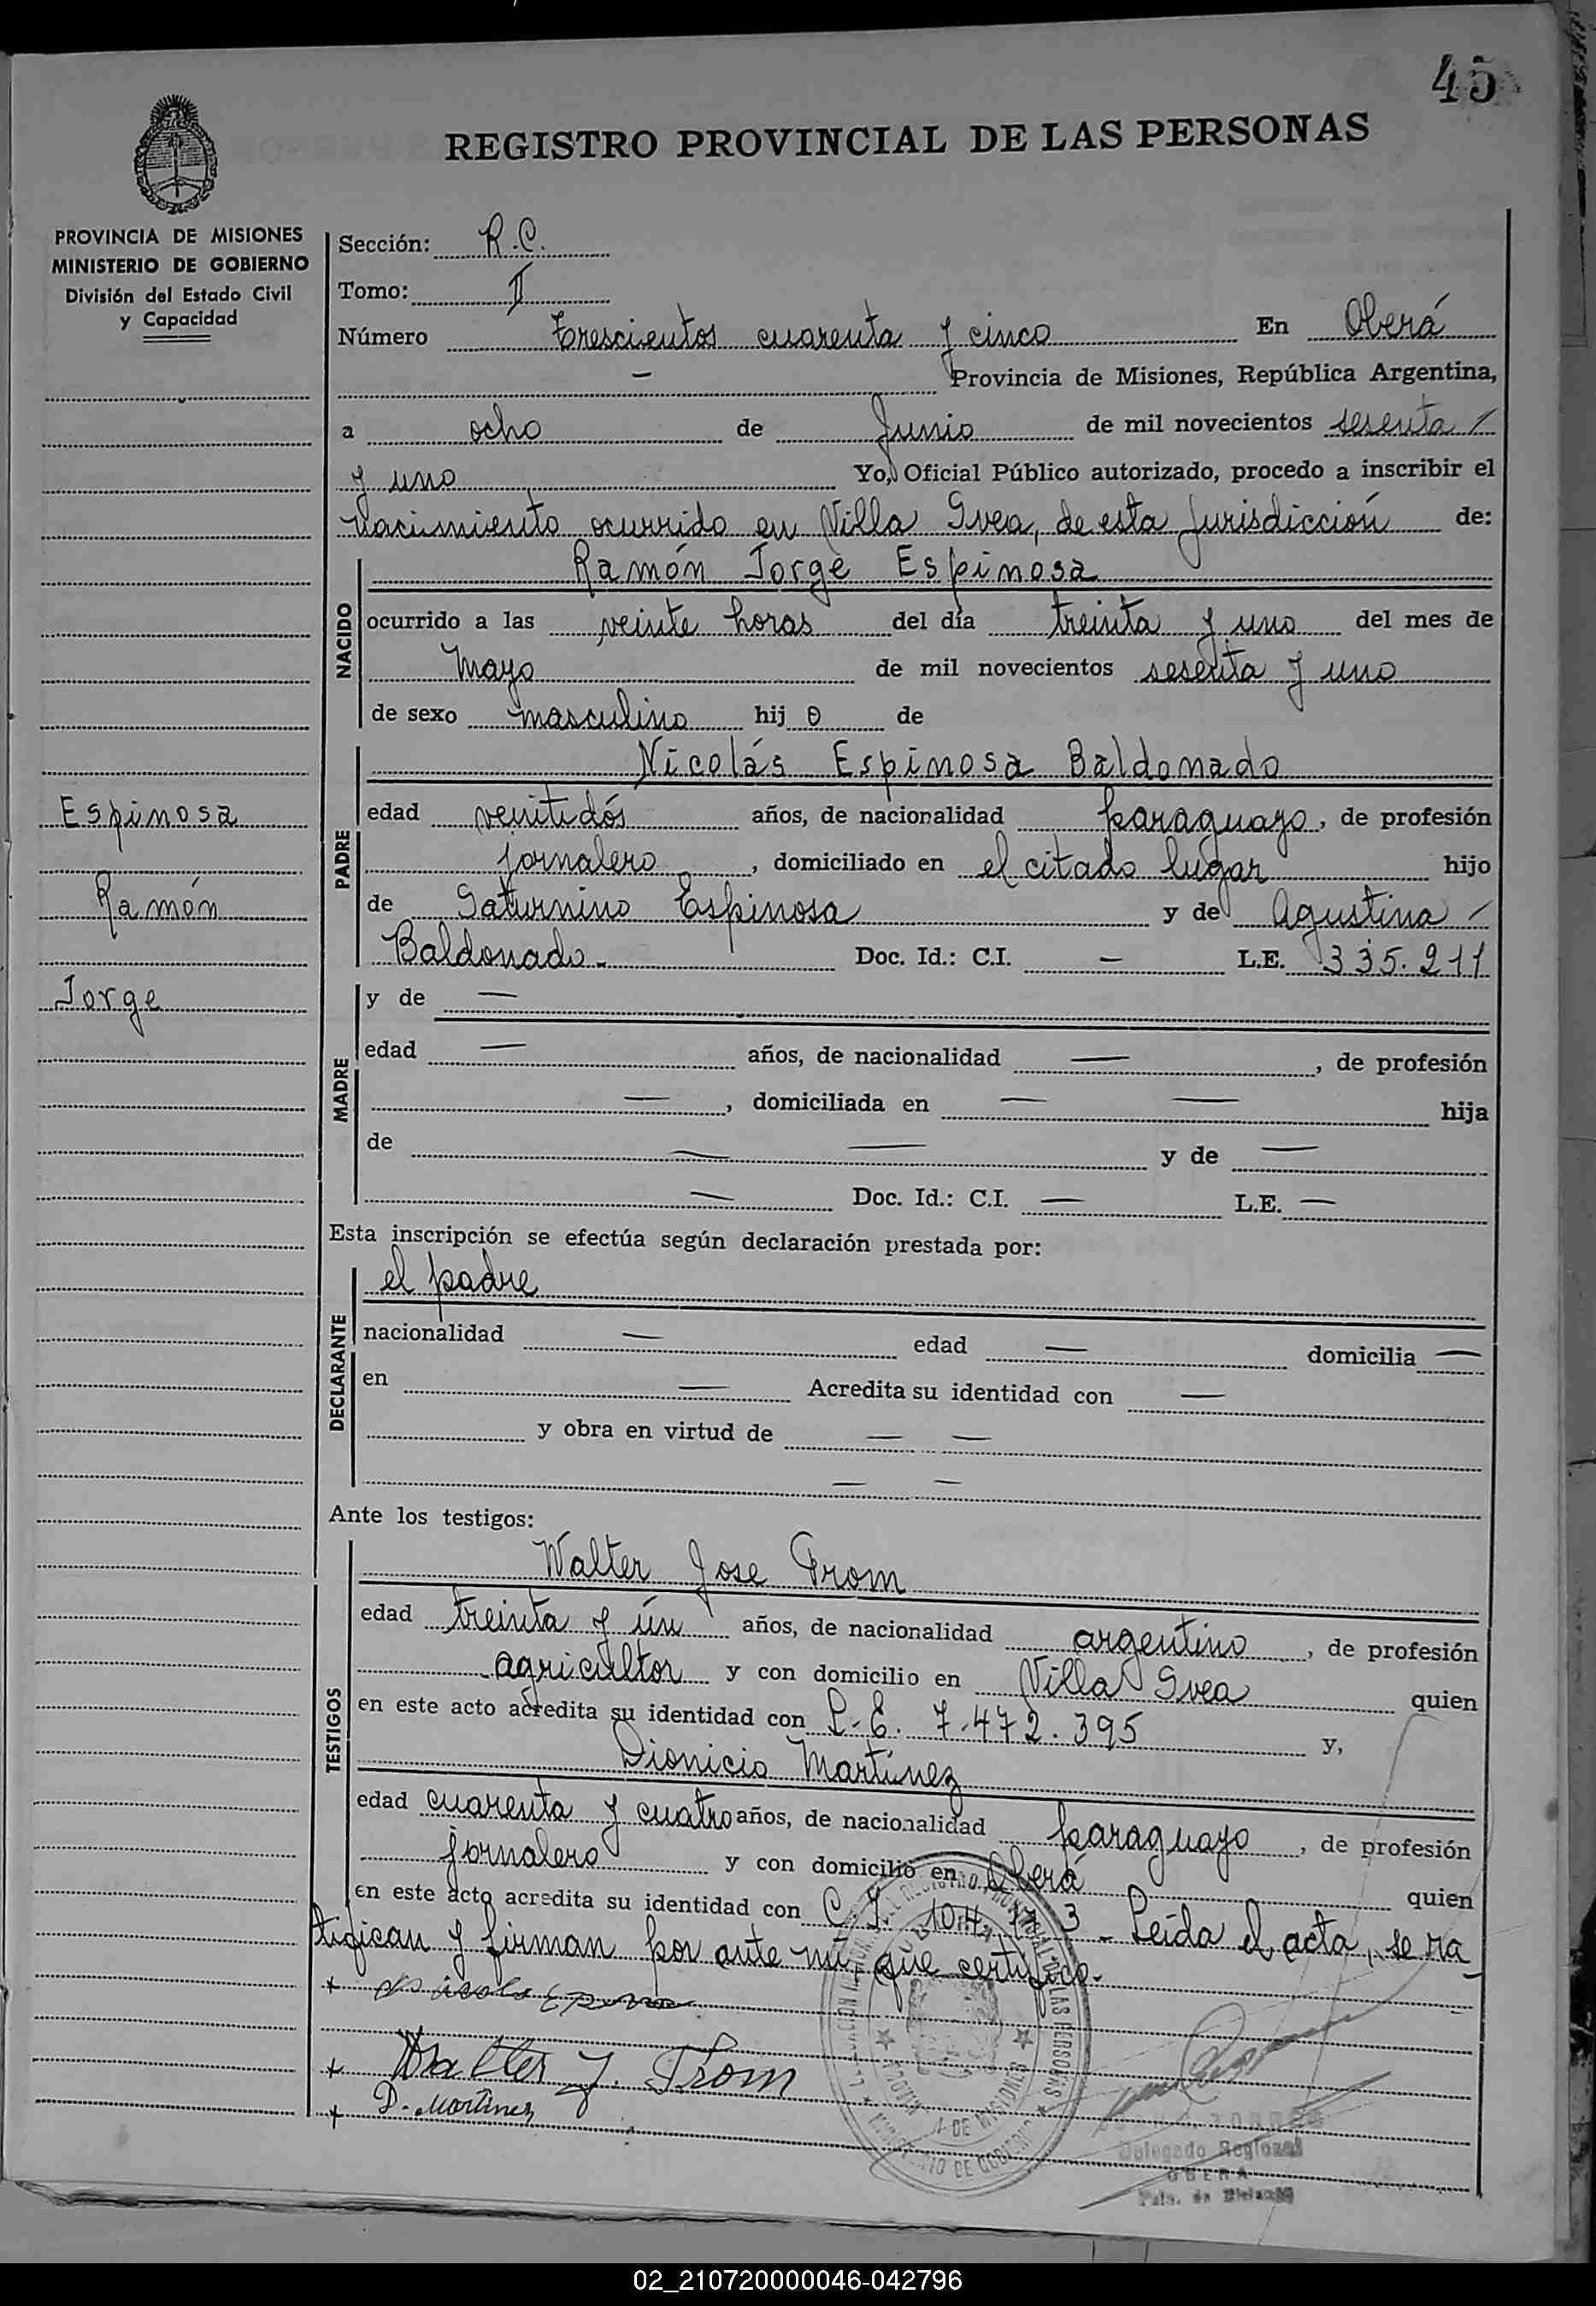 45
REGISTRO PROVINCIAL DE LAS PERSONAS
PROVINCIA DE MISIONES
MINISTERIO DE GOBIERNO
División del Estado Civil
y Capacidad
Espinosa
Ramón
Jorge
Sección: R.C.
Tomo: II
Número Trescientos cuarenta y cinco En Oberá
— Provincia de Misiones, República Argentina,
a ocho de Junio de mil novecientos sesenta /
y uno Yo, Oficial Público autorizado, procedo a inscribir el
nacimiento ocurrido en Villa Svea, de esta Jurisdicción de:
NACIDO
Ramón Jorge Espinosa
ocurrido a las veinte horas del día treinta y uno del mes de
Mayo de mil novecientos sesenta y uno
de sexo masculino hij o de
PADRE
Nicolás Espinosa Baldonado
edad veintidós años, de nacionalidad paraguayo, de profesión
jornalero, domiciliado en el citado lugar hijo
de Saturnino Espinosa y de Agustina /
Baldonado.- Doc. Id.: C.I. — L.E. 335.211
MADRE
y de —
edad — años, de nacionalidad —, de profesión
—, domiciliada en — — hija
de — — y de —
— Doc. Id.: C.I. — L.E. —
Esta inscripción se efectúa según declaración prestada por:
DECLARANTE
el padre
nacionalidad — edad — domicilia —
en — Acredita su identidad con —
y obra en virtud de — —
— —
Ante los testigos:
TESTIGOS
Walter Jose From
edad treinta y ún años, de nacionalidad argentino, de profesión
agricultor y con domicilio en Villa Svea quien
en este acto acredita su identidad con L.E. 7.472.395 y,
Dionicio Martínez
edad cuarenta y cuatro años, de nacionalidad paraguayo, de profesión
jornalero y con domicilio en Oberá quien
en este acto acredita su identidad con C.I. - Leída el acta, se ra
tifican y firman por ante mí, que certifico.-
+
+ Walter J. From
+ D. Martinez
Delegado Regional
OBERA
02_210720000046-042796